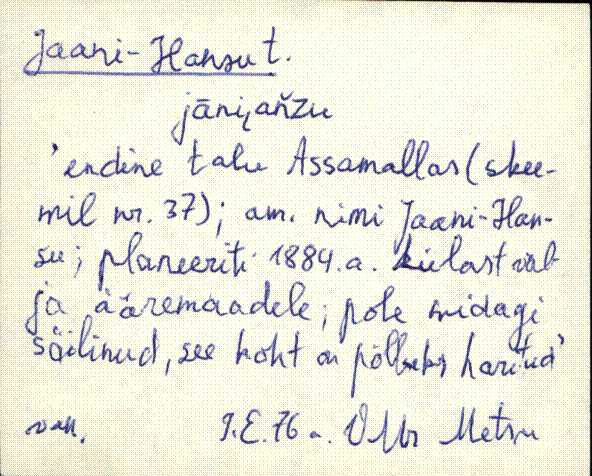 Jaani-Hansu t.
jāni,ańzu
'endine talu Assamallas (skee-
mil nr. 37); am. nimi Jaani-Han-
su; planeeriti 1884. a. külast väl
ja ääremaadele; pole midagi
säilinud, see koht on põlluks haritud'
van. I.E. 76 a. VMr Metsu